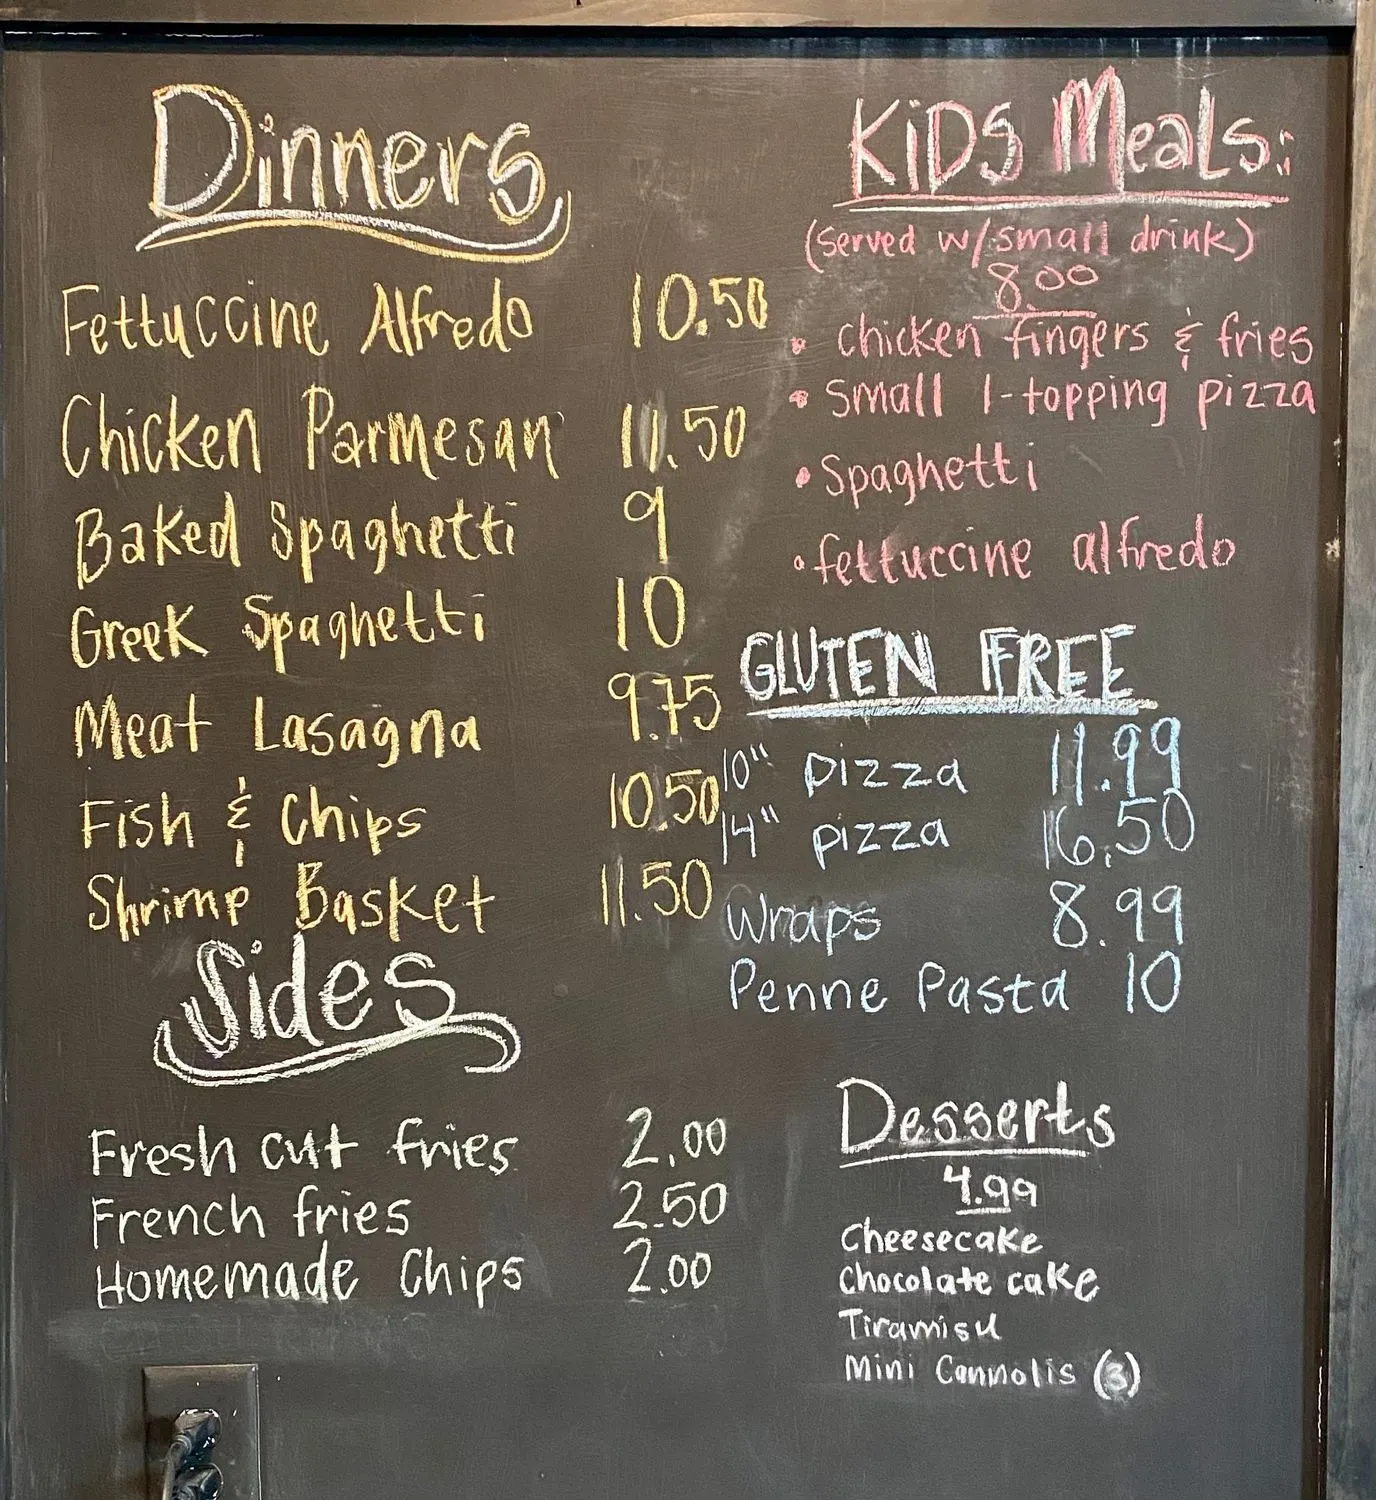 Dinners
Fettuccine Alfredo 10.50
Chicken Parmesan 11.50
Baked Spaghetti 9
Greek Spaghetti 10
Meat Lasagna 9.75
Fish & Chips 10.50
Shrimp Basket 11.50
Sides
Fresh cut fries 2.00
French fries 2.50
Homemade Chips 2.00
KiDS Meals:
(served w/small drink)
8.00
• chicken fingers & fries
• Small 1-topping pizza
• Spaghetti
• fettuccine alfredo
GLUTEN FREE
10" pizza 11.99
14" pizza 16.50
Wraps 8.99
Penne Pasta 10
Desserts
4.99
Cheesecake
Chocolate cake
Tiramisu
Mini Cannolis (3)